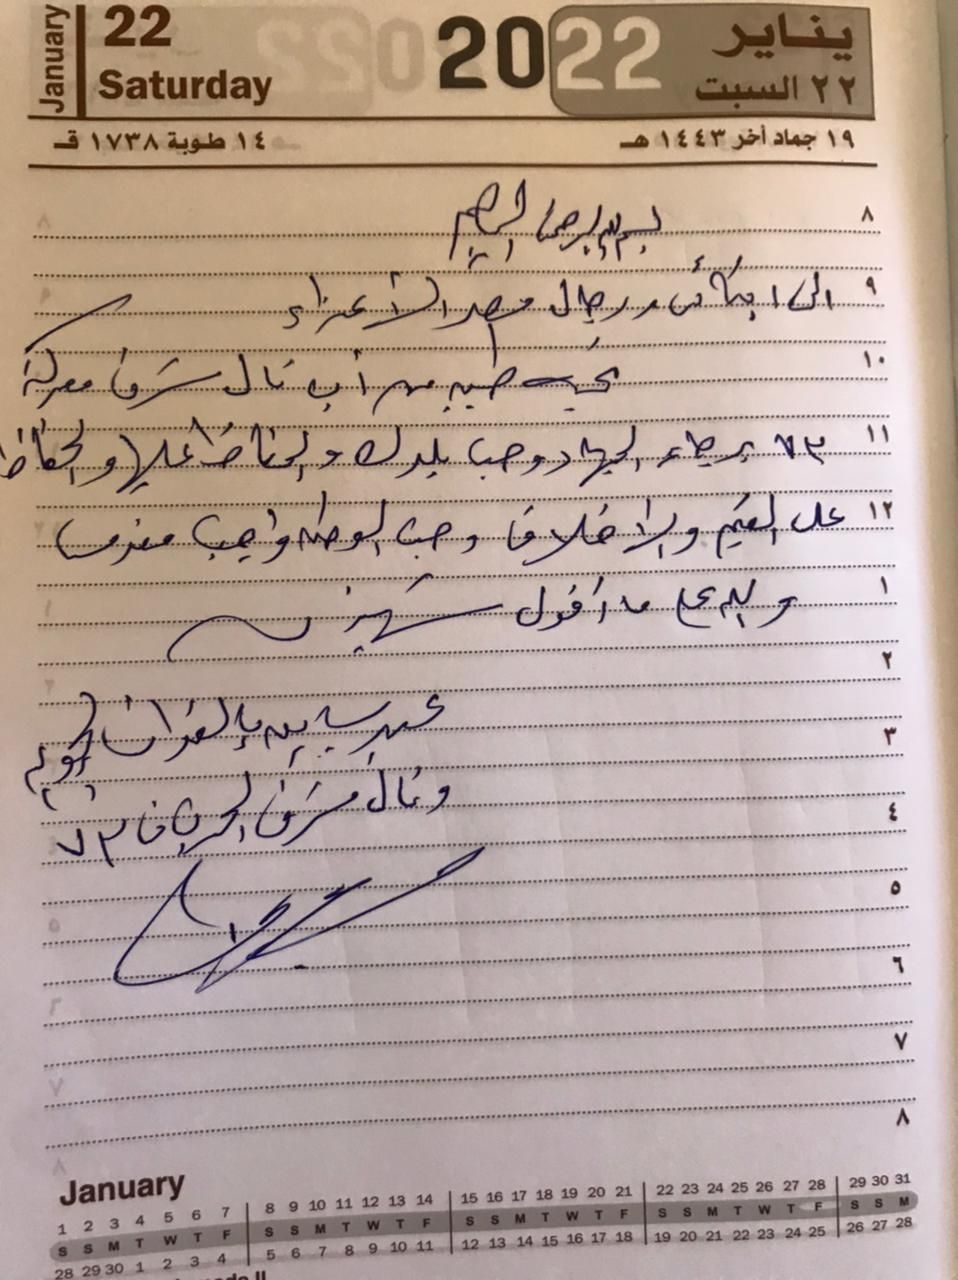 January
22
Saturday
2022
يناير
٢٢ السبت
١٩ جماد أخر ١٤٤٣ هـ
١٤ طوبة ١٧٣٨ ق
٨
بسم الله الرحمن الرحيم
٩
الى ابنائى ورجال مصر الأعزاء
١٠
تحيه طيبه من أب نال شرف معركة
١١
٧٣ الجهاد وحب بلدك والحفاظ عليها والحفاظ
١٢
على القيم والاخلاق وحب الوطن واجب مقدس
١
والله على ما أقول شهيد
٢
بالقران الكريم
٣
ونال شرف الحرب ٧٣
٤
٥
٦
٧
٨
January
1 2 3 4 5 6 7 8 9 10 11 12 13 14 15 16 17 18 19 20 21 22 23 24 25 26 27 28 29 30 31
S S M T W T F S S M T W T F S S M T W T F S S M T W T F S S M
28 29 30 1 2 3 4 5 6 7 8 9 10 11 12 13 14 15 16 17 18 19 20 21 22 23 24 25 26 27 28